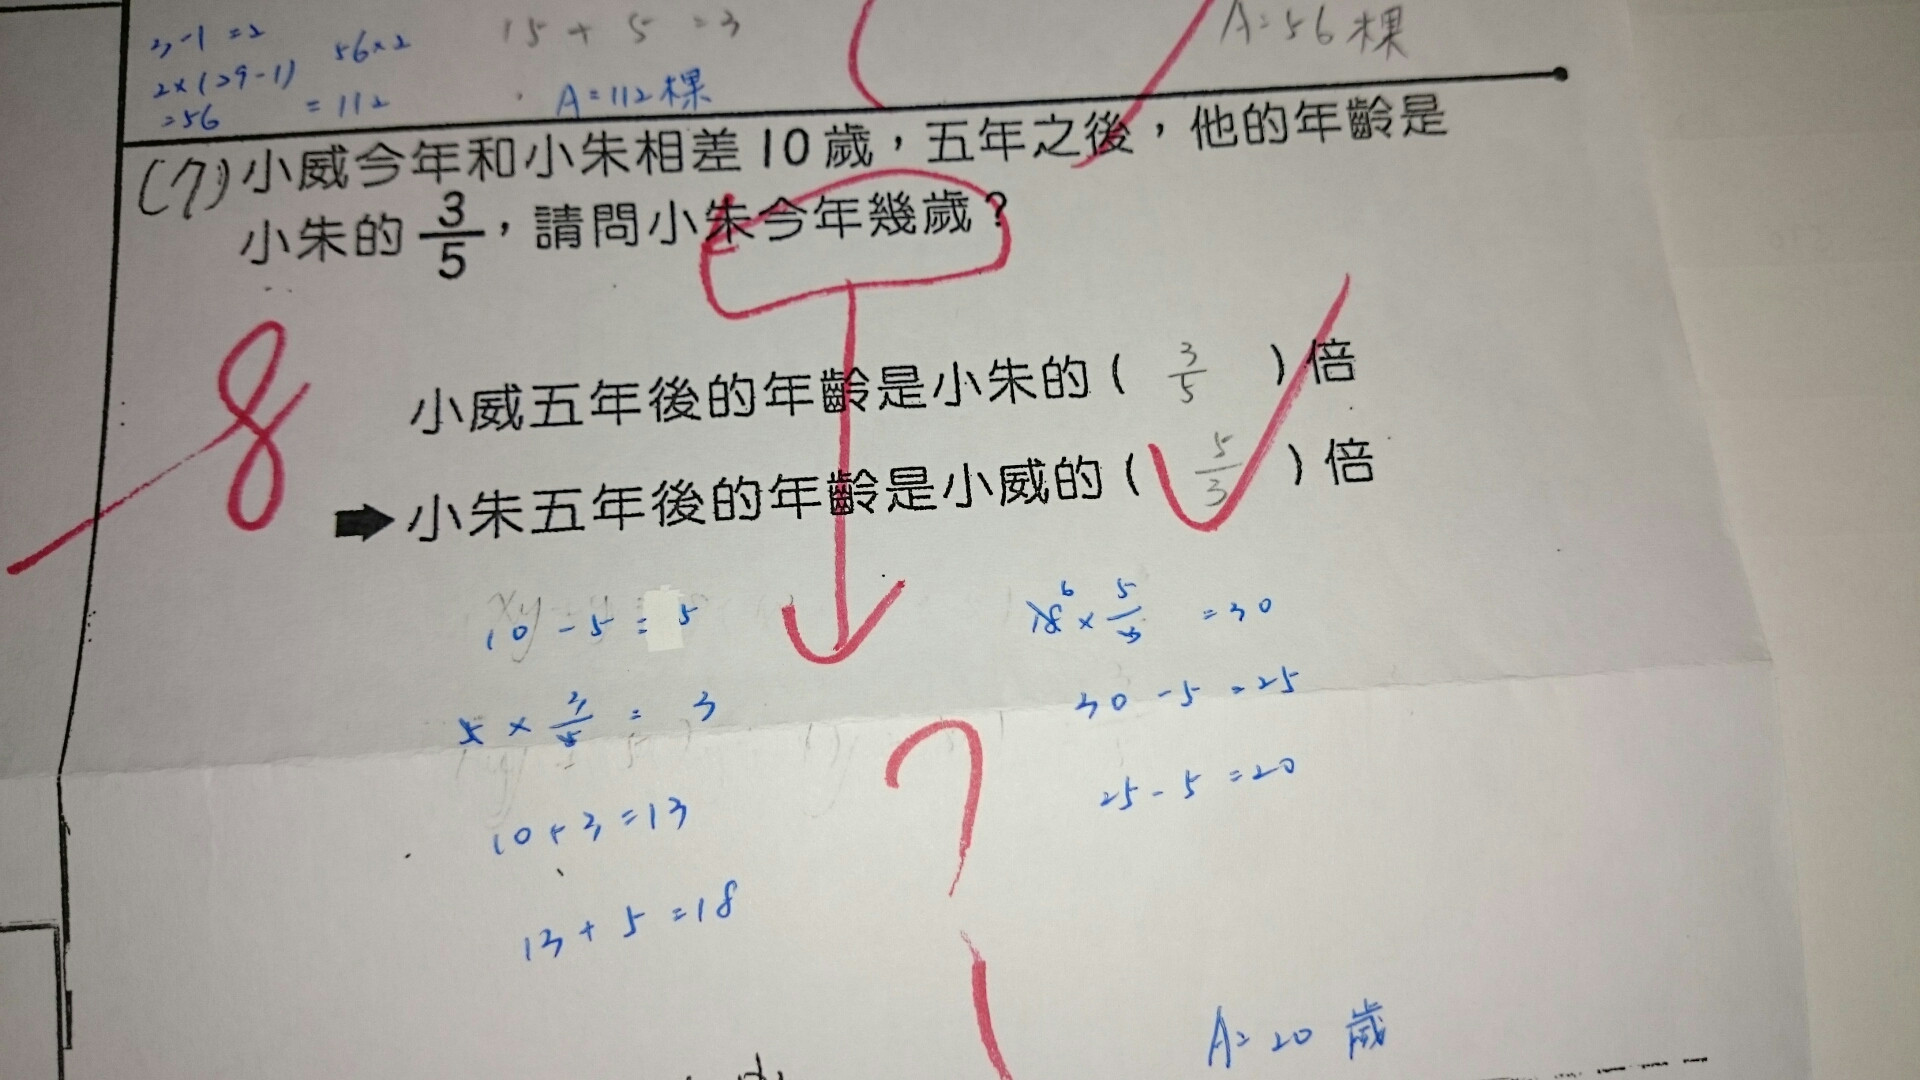 3-1=2
2×(29-1)
=56
56×2
=112
15+5=3
A=112棵
A=56棵
(7)小威今年和小朱相差10歲，五年之後，他的年齡是
小朱的3/5，請問小朱今年幾歲？
8
小威五年後的年齡是小朱的（ 3/5 ）倍
➡小朱五年後的年齡是小威的（ 5/3 ）倍
10-5=5
5×3/5=3
10+3=13
13+5=18
18 6×5/3=30
30-5=25
25-5=20
?
A=20歲